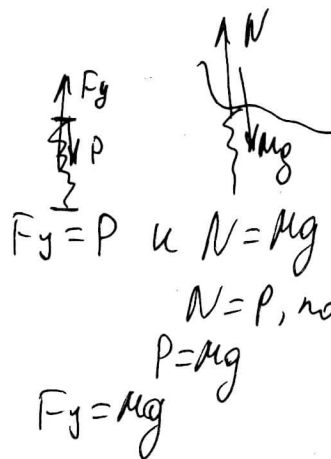 Fy N
P Mg
Fy = P и N = Mg
N = P, по
P = Mg
Fy = Mg